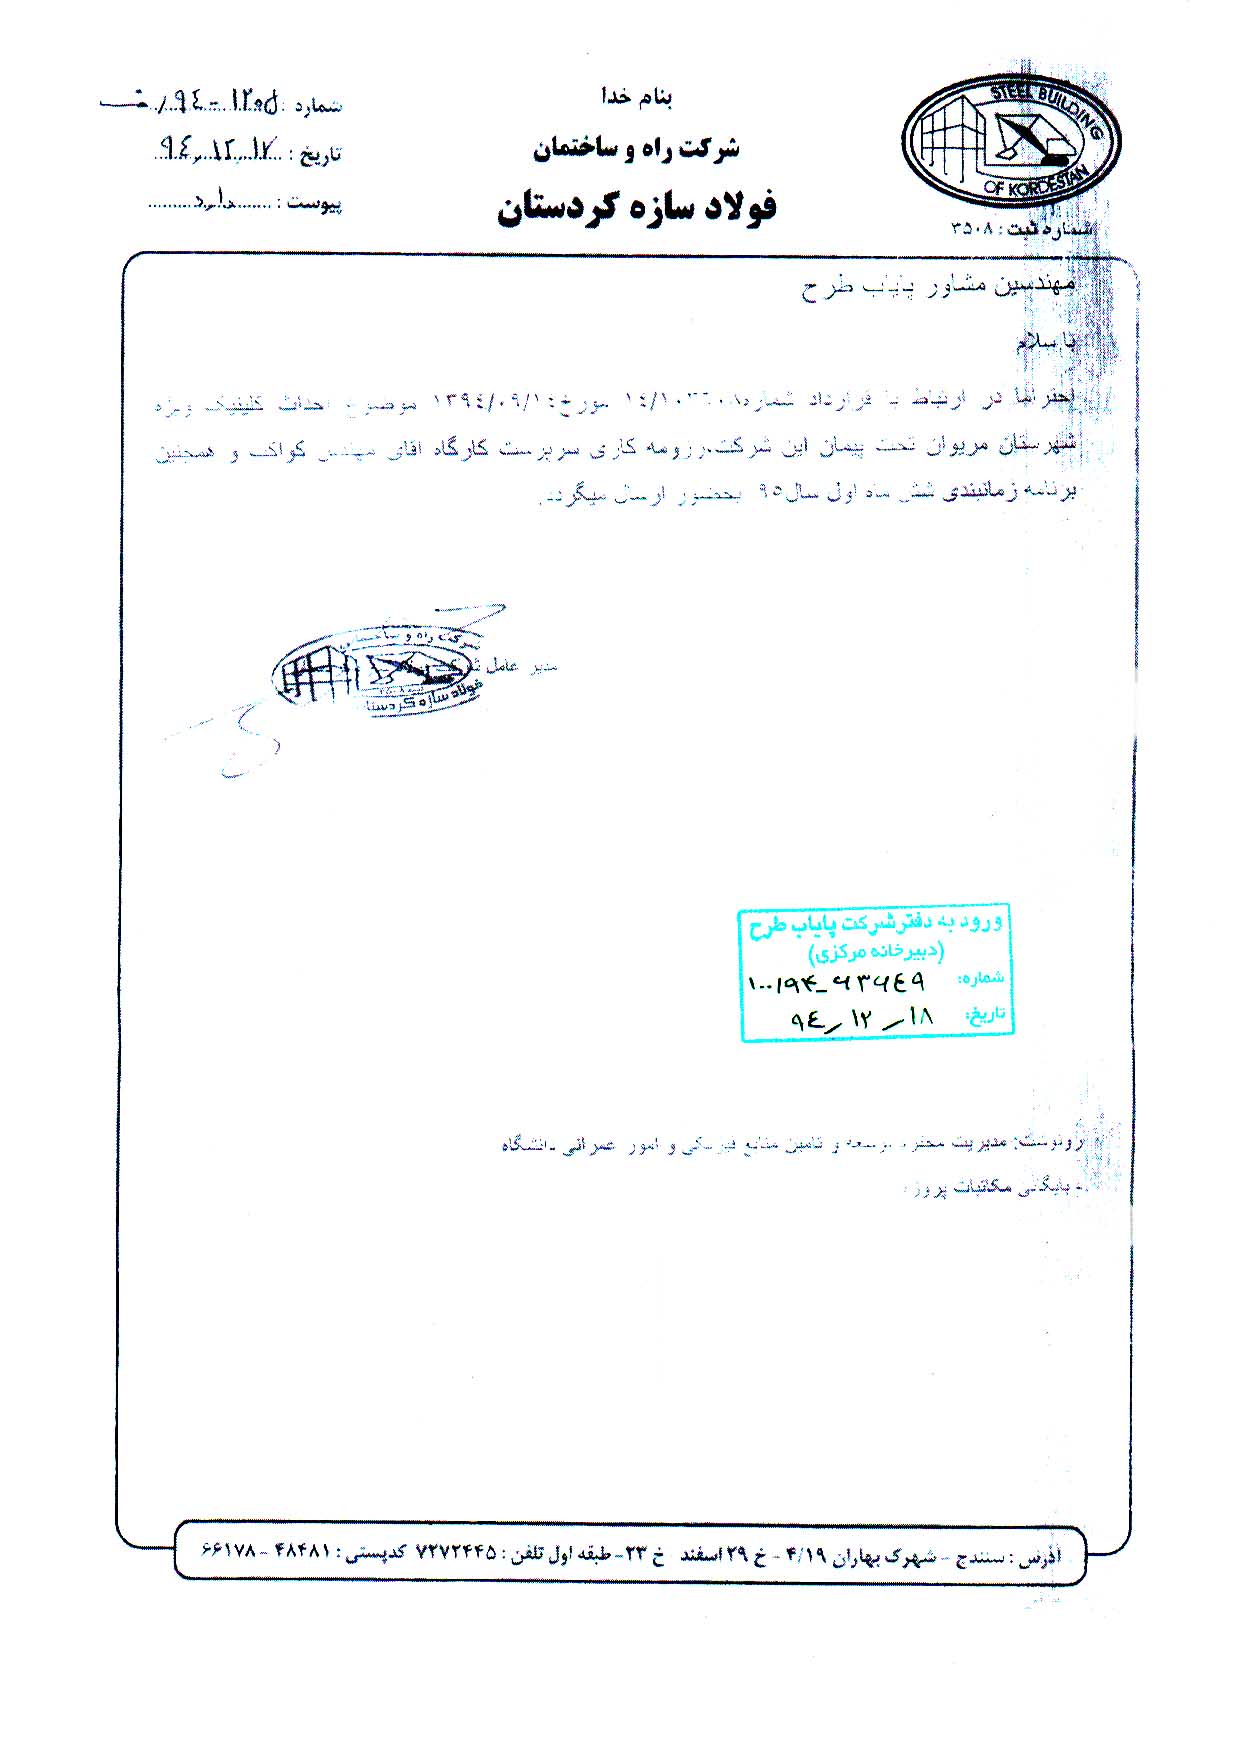 بنام خدا
شرکت راه و ساختمان
فولاد سازه کردستان
STEEL BUILDING
OF KORDESTAN
شماره ثبت : ۳۵۰۸
شماره :
تاریخ : ۹۴٫۱۲٫۱۷
پیوست : دارد
مهندسین مشاور پایاب طرح
با سلام
احتراما در ارتباط با قرارداد شماره مورخ ۱۳۹۴/۰۹/۱۴ موضوع احداث کلینیک ویژه
شهرستان مریوان تحت پیمان این شرکت، رزومه کاری سرپرست کارگاه اقای مهندس و همچنین
برنامه زمانبندی شش ماه اول سال ۹۵ بحضور ارسال میگردد.
مدیر عامل
شرکت راه و ساختمانی
فولاد سازه کردستان
ورود به دفتر شرکت پایاب طرح
(دبیرخانه مرکزی)
شماره: ۱۰۰/۹۴-۶۳۶۴۹
تاریخ: ۹۴/۱۲/۱۸
رونوشت: مدیریت محترم توسعه و تامین منابع فیزیکی و امور عمرانی دانشگاه
بایگانی مکاتبات پروژه
آدرس : سنندج - شهرک بهاران ۴/۱۹ - خ ۲۹ اسفند خ ۲۳- طبقه اول تلفن : ۷۲۷۲۴۴۵ کدپستی : ۴۸۴۸۱ - ۶۶۱۷۸